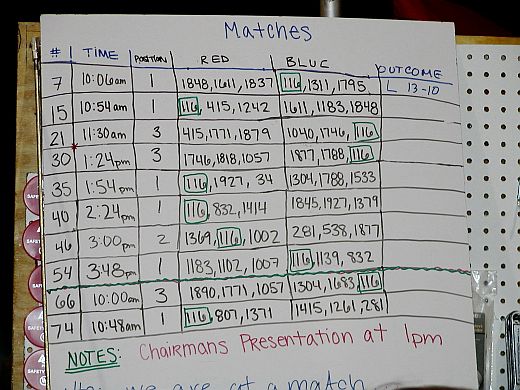 Matches
# TIME POSITION RED BLUE OUTCOME
7 10:06am 1 1848, 1611, 1837 116, 1311, 1795 L 13-10
15 10:54am 1 116, 415, 1242 1611, 1183, 1848
21 11:30am 3 415, 1771, 1879 1040, 1746, 116
30 1:24pm 3 1746, 1818, 1057 1877, 1788, 116
35 1:54pm 1 116, 1927, 34 1304, 1788, 1533
40 2:24pm 1 116, 832, 1414 1845, 1927, 1379
46 3:00pm 2 1369, 116, 1002 281, 538, 1877
54 3:48pm 1 1183, 1102, 1007 116, 1139, 832
66 10:00am 3 1890, 1771, 1057 1304, 1683, 116
74 10:48am 1 116, 807, 1371 1415, 1261, 281
NOTES: Chairmans Presentation at 1pm
we are at a match